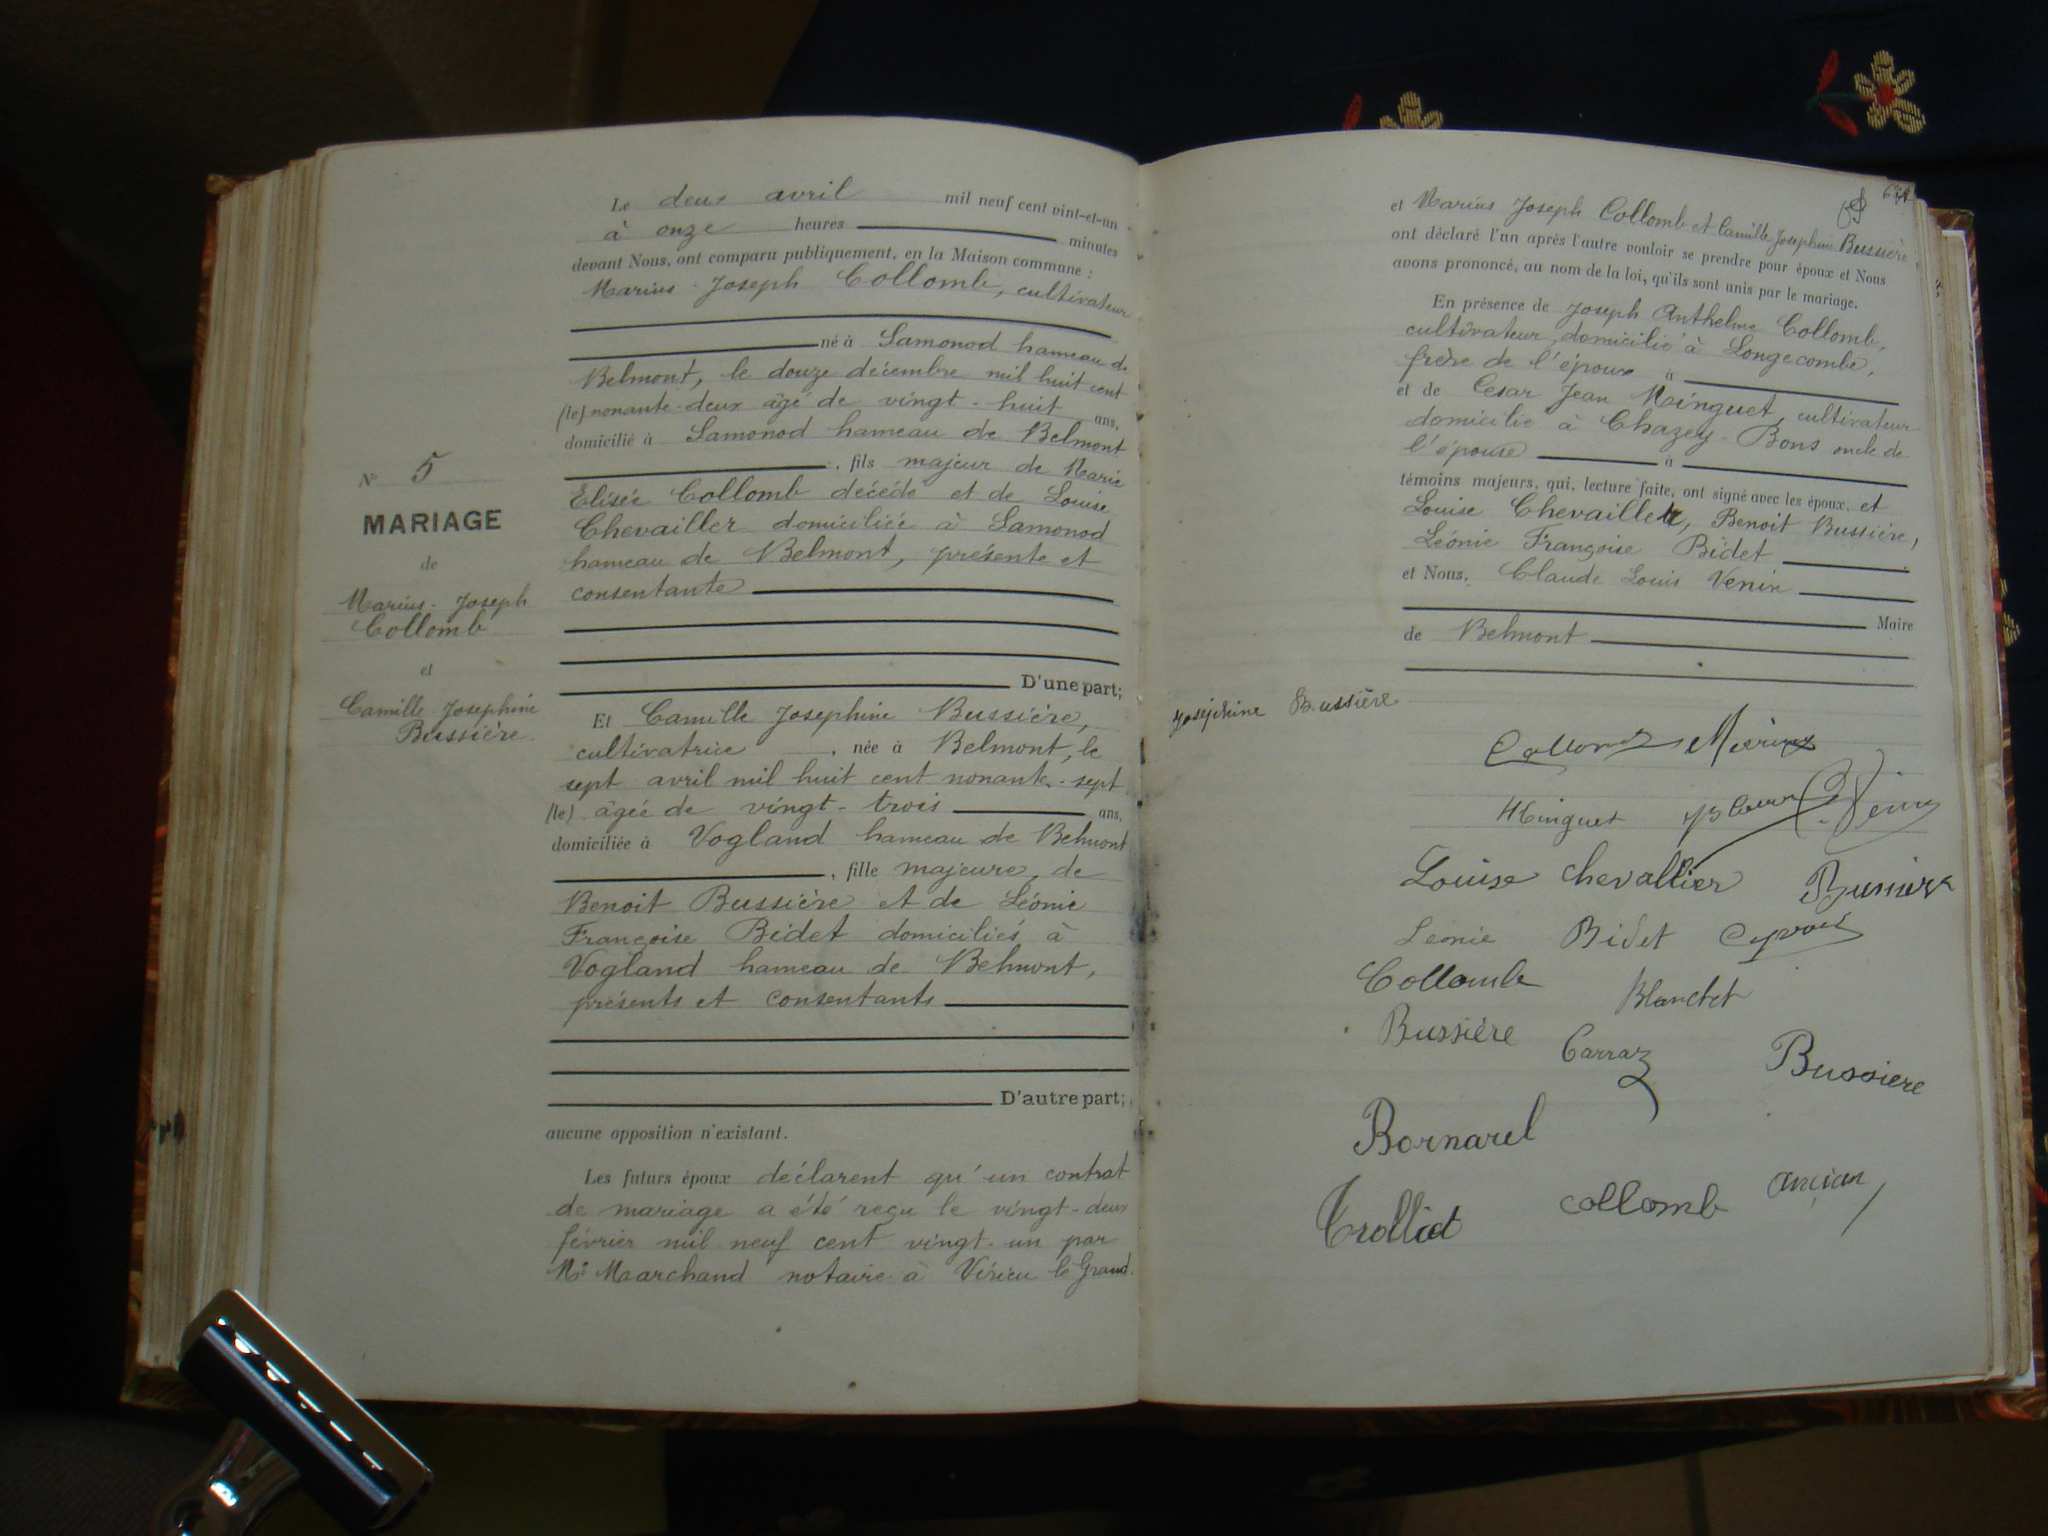 Le deux avril mil neuf cent vint-et-un
à onze heures minutes
devant Nous, ont comparu publiquement, en la Maison commune :
Marius-Joseph Collomb, cultivateur
né à Samonod hameau de
Belmont, le douze décembre mil huit cent
(le) nonante-deux âgé de vingt-huit ans,
domicilié à Samonod hameau de Belmont
, fils majeur de Marie
Elisée Collomb décédé et de Louise
Chevailler domiciliée à Samonod
hameau de Belmont, présente et
consentante
D'une part;
N° 5
MARIAGE
de
Marius-Joseph
Collomb
et
Camille Josephine
Bussière
Et Camille Josephine Bussière,
cultivatrice, née à Belmont, le
sept avril mil huit cent nonante-sept
(le) âgée de vingt-trois ans,
domiciliée à Vogland hameau de Belmont
, fille majeure de
Benoit Bussière et de Léonie
Françoise Bidet domiciliés à
Vogland hameau de Belmont,
présents et consentants
D'autre part;
aucune opposition n'existant.
Les futurs époux déclarent qu'un contrat
de mariage a été reçu le vingt-deux
février mil neuf cent vingt-un par
Me Marchand notaire à Virieu le Grand.
et Marius Joseph Collomb et Camille Josephine Bussière
ont déclaré l'un après l'autre vouloir se prendre pour époux et Nous
avons prononcé, au nom de la loi, qu'ils sont unis par le mariage.
En présence de Joseph Anthelme Collomb,
cultivateur, domicilié à Longecombe,
frère de l'époux à
et de Cesar Jean Minguet, cultivateur
domicilié à Chazey-Bons oncle de
l'épouse à
témoins majeurs, qui, lecture faite, ont signé avec les époux, et
Louise Chevailler, Benoit Bussière,
Léonie Françoise Bidet
et Nous, Claude Louis Venin
Maire
de Belmont
Joséphine Bussière
Collomb Marius
Minguet
Louise Chevallier Bussière
Léonie Bidet
Collomb Blanchet
Bussière Carraz Bussiere
Bornarel
Trolliet collomb ancian